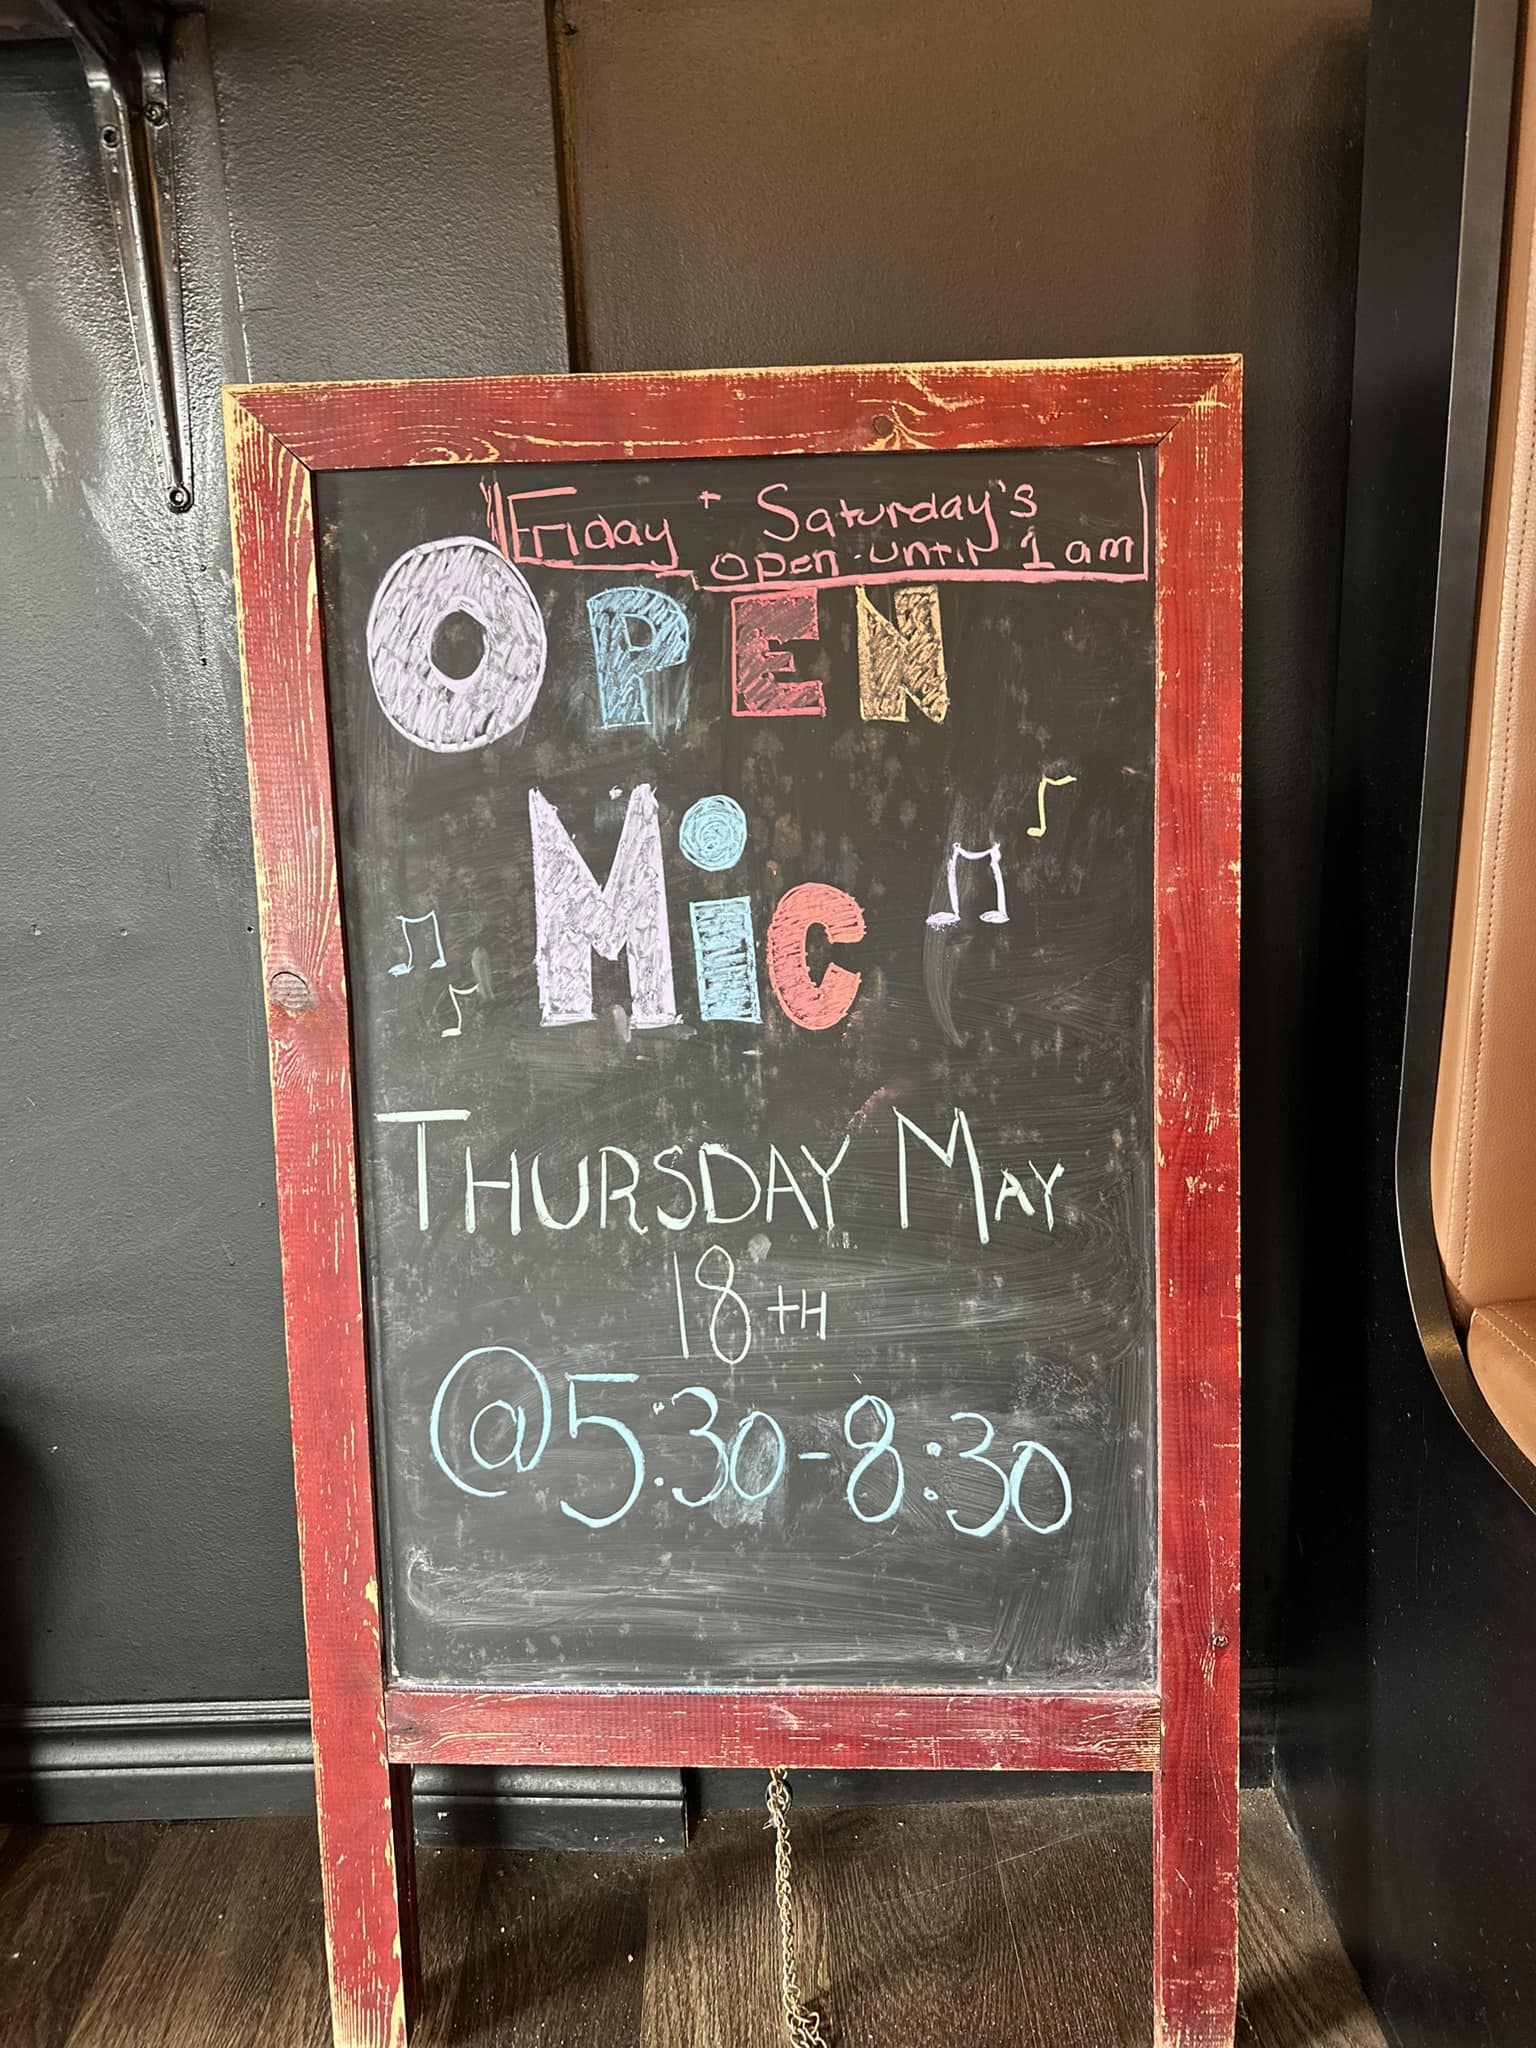 Friday + Saturday's
open until 1 am
OPEN
MiC
THURSDAY MAY
18TH
@5:30-8:30